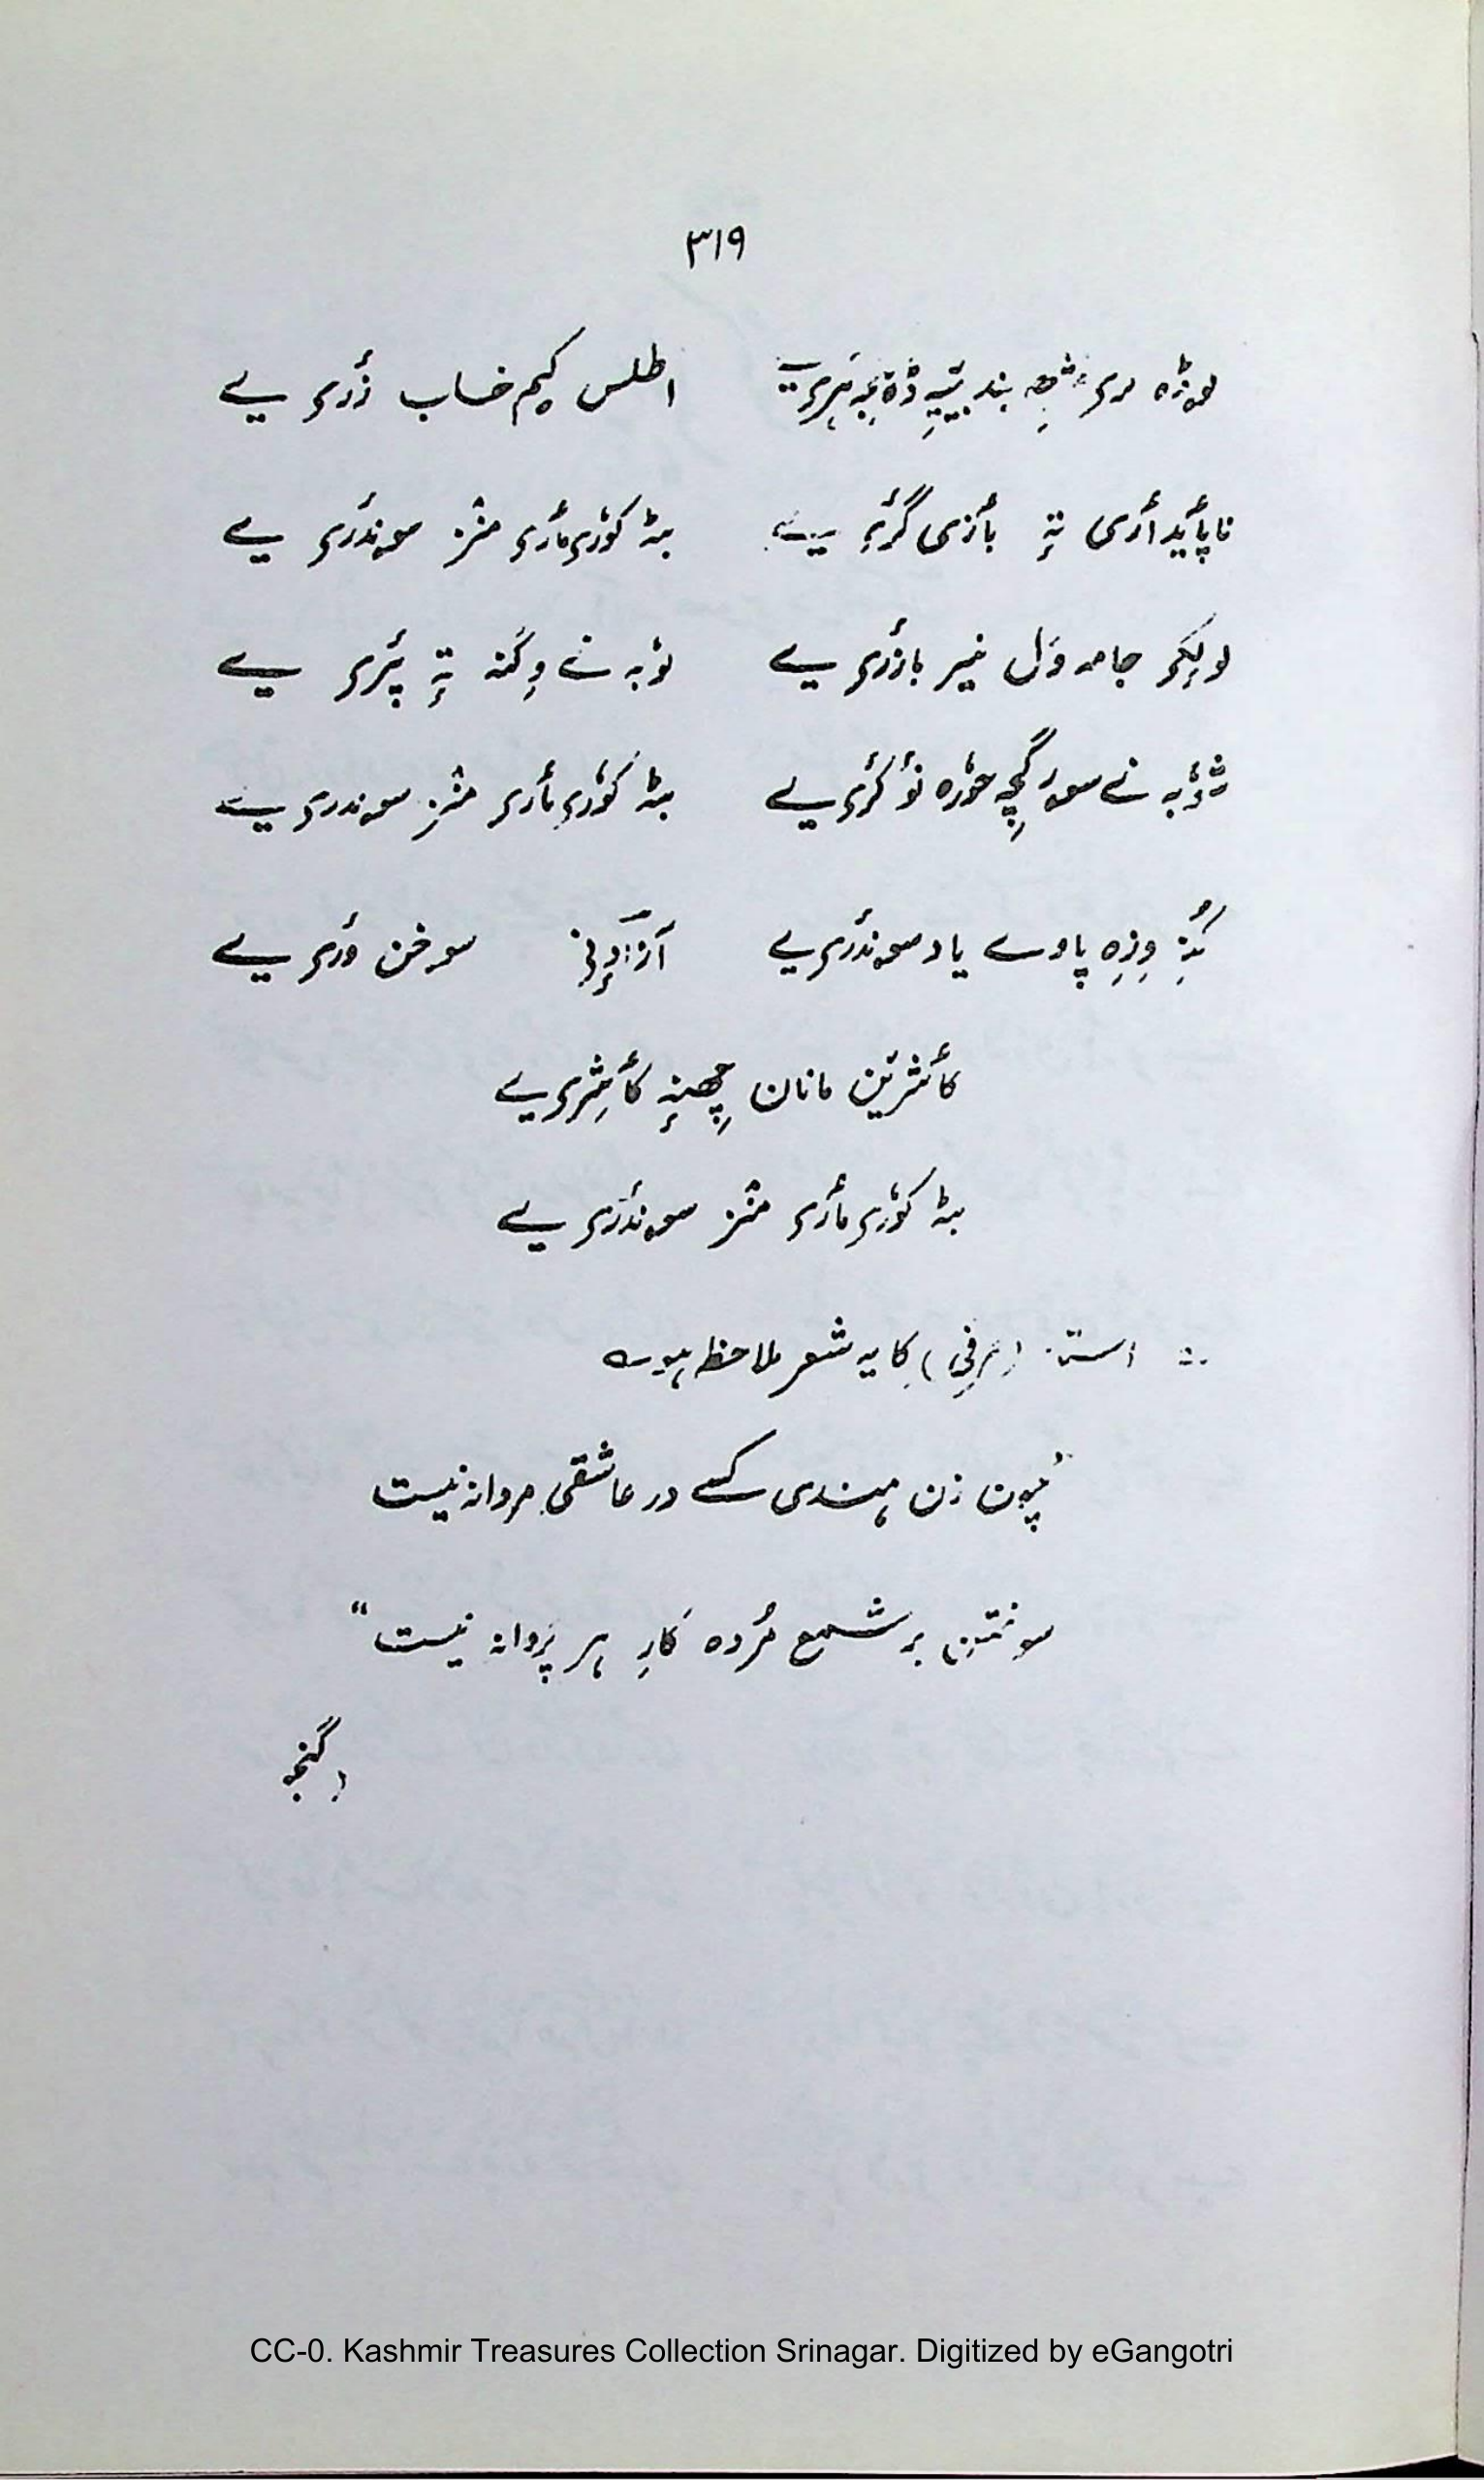 ۳۱۹
اطلس کیم خساب زٔری یے
ناپأید أری تہٕ بأزی گرٔی یے بٹہ کوٗری مأری منٛز سوندٔری یے
لولکۍ جامہ وَل نیر بازٔری یے توبہ نے وِگنہ تہٕ پرٔی یے
ژوٗبہ نے سورگچہِ حوٗرہ نوٗ کرٔی یے بٹہ کوٗری مأری منٛز سوندری یے
کُنہِ وِزِہ پاوے یاد سوندٔری یے آزادٕنۍ سوخن وٲری یے
کأشرین مانان چھنہٕ کأشری یے
بٹہ کوٗری مأری منٛز سوندٔری یے
استاد (مرفی) کا یہ شعر ملاحظہ ہو۔
"چون زن ہندی کسے در عاشقی مردانہ نیست
سوختن بر شمع مُردہ کارِ ہر پروانہ نیست"
CC-0. Kashmir Treasures Collection Srinagar. Digitized by eGangotri